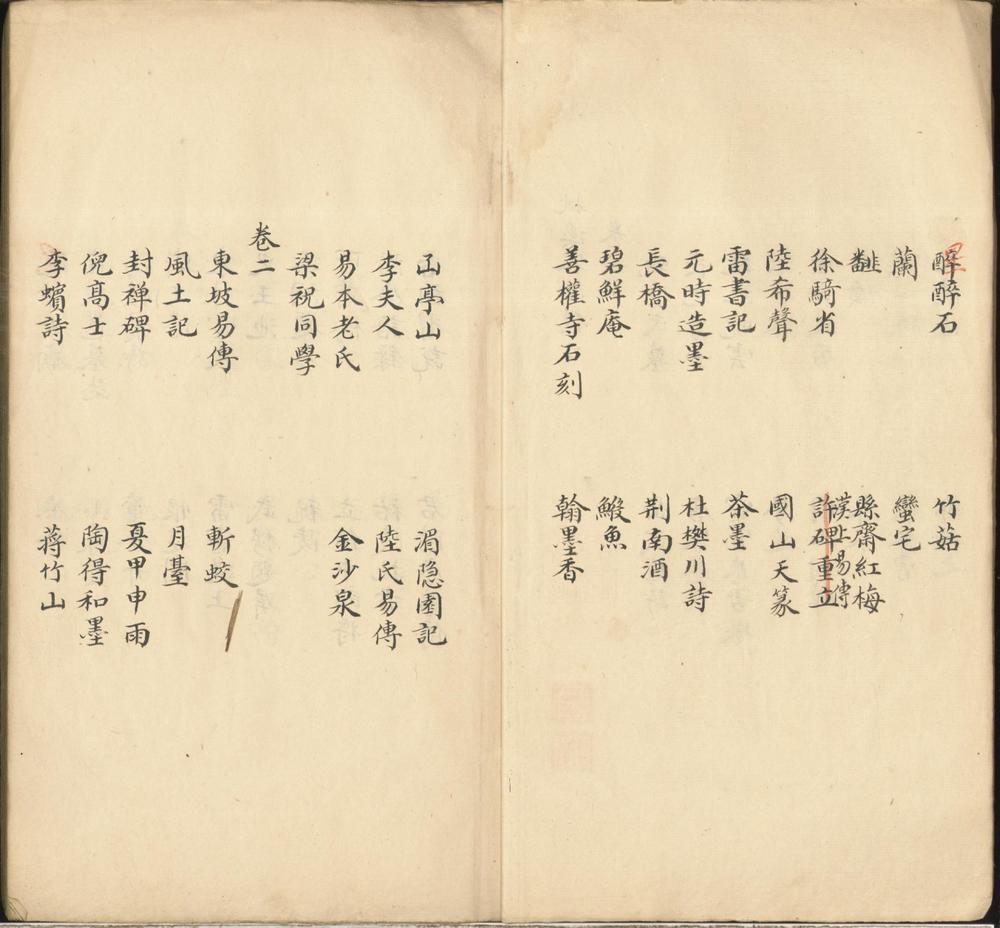 醒醉石　竹菇
蘭　蠻宅
縣齋紅梅
漢上易傳
徐騎省　許碑重立
陸希聲　國山天篆
雷書記　茶墨
元時造墨　杜樊川詩
長橋　荆南酒
碧鮮庵　鰕魚
善權寺石刻　翰墨香
亭山　湄隐園記
李夫人　陸氏易傳
易本老氏　金沙泉
梁祝同學
卷二
東坡易傳　斬蛟
風土記　月臺
封禅碑　夏甲申雨
倪髙士　陶得和墨
李蠙詩　蒋竹山